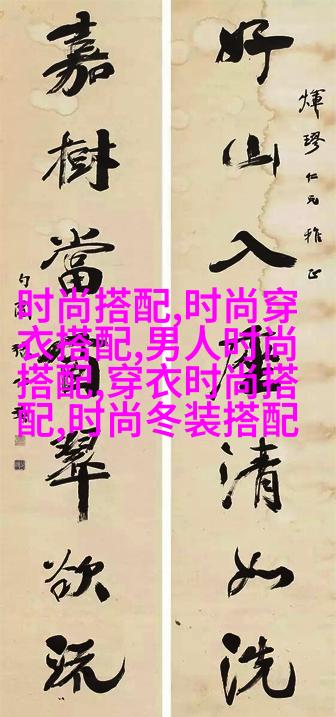 煇璆仁兄雅正
好山入座清如洗
嘉樹當窗翠欲流
时尚搭配,时尚穿
衣搭配,男人时尚
搭配,穿衣时尚搭
配,时尚冬装搭配